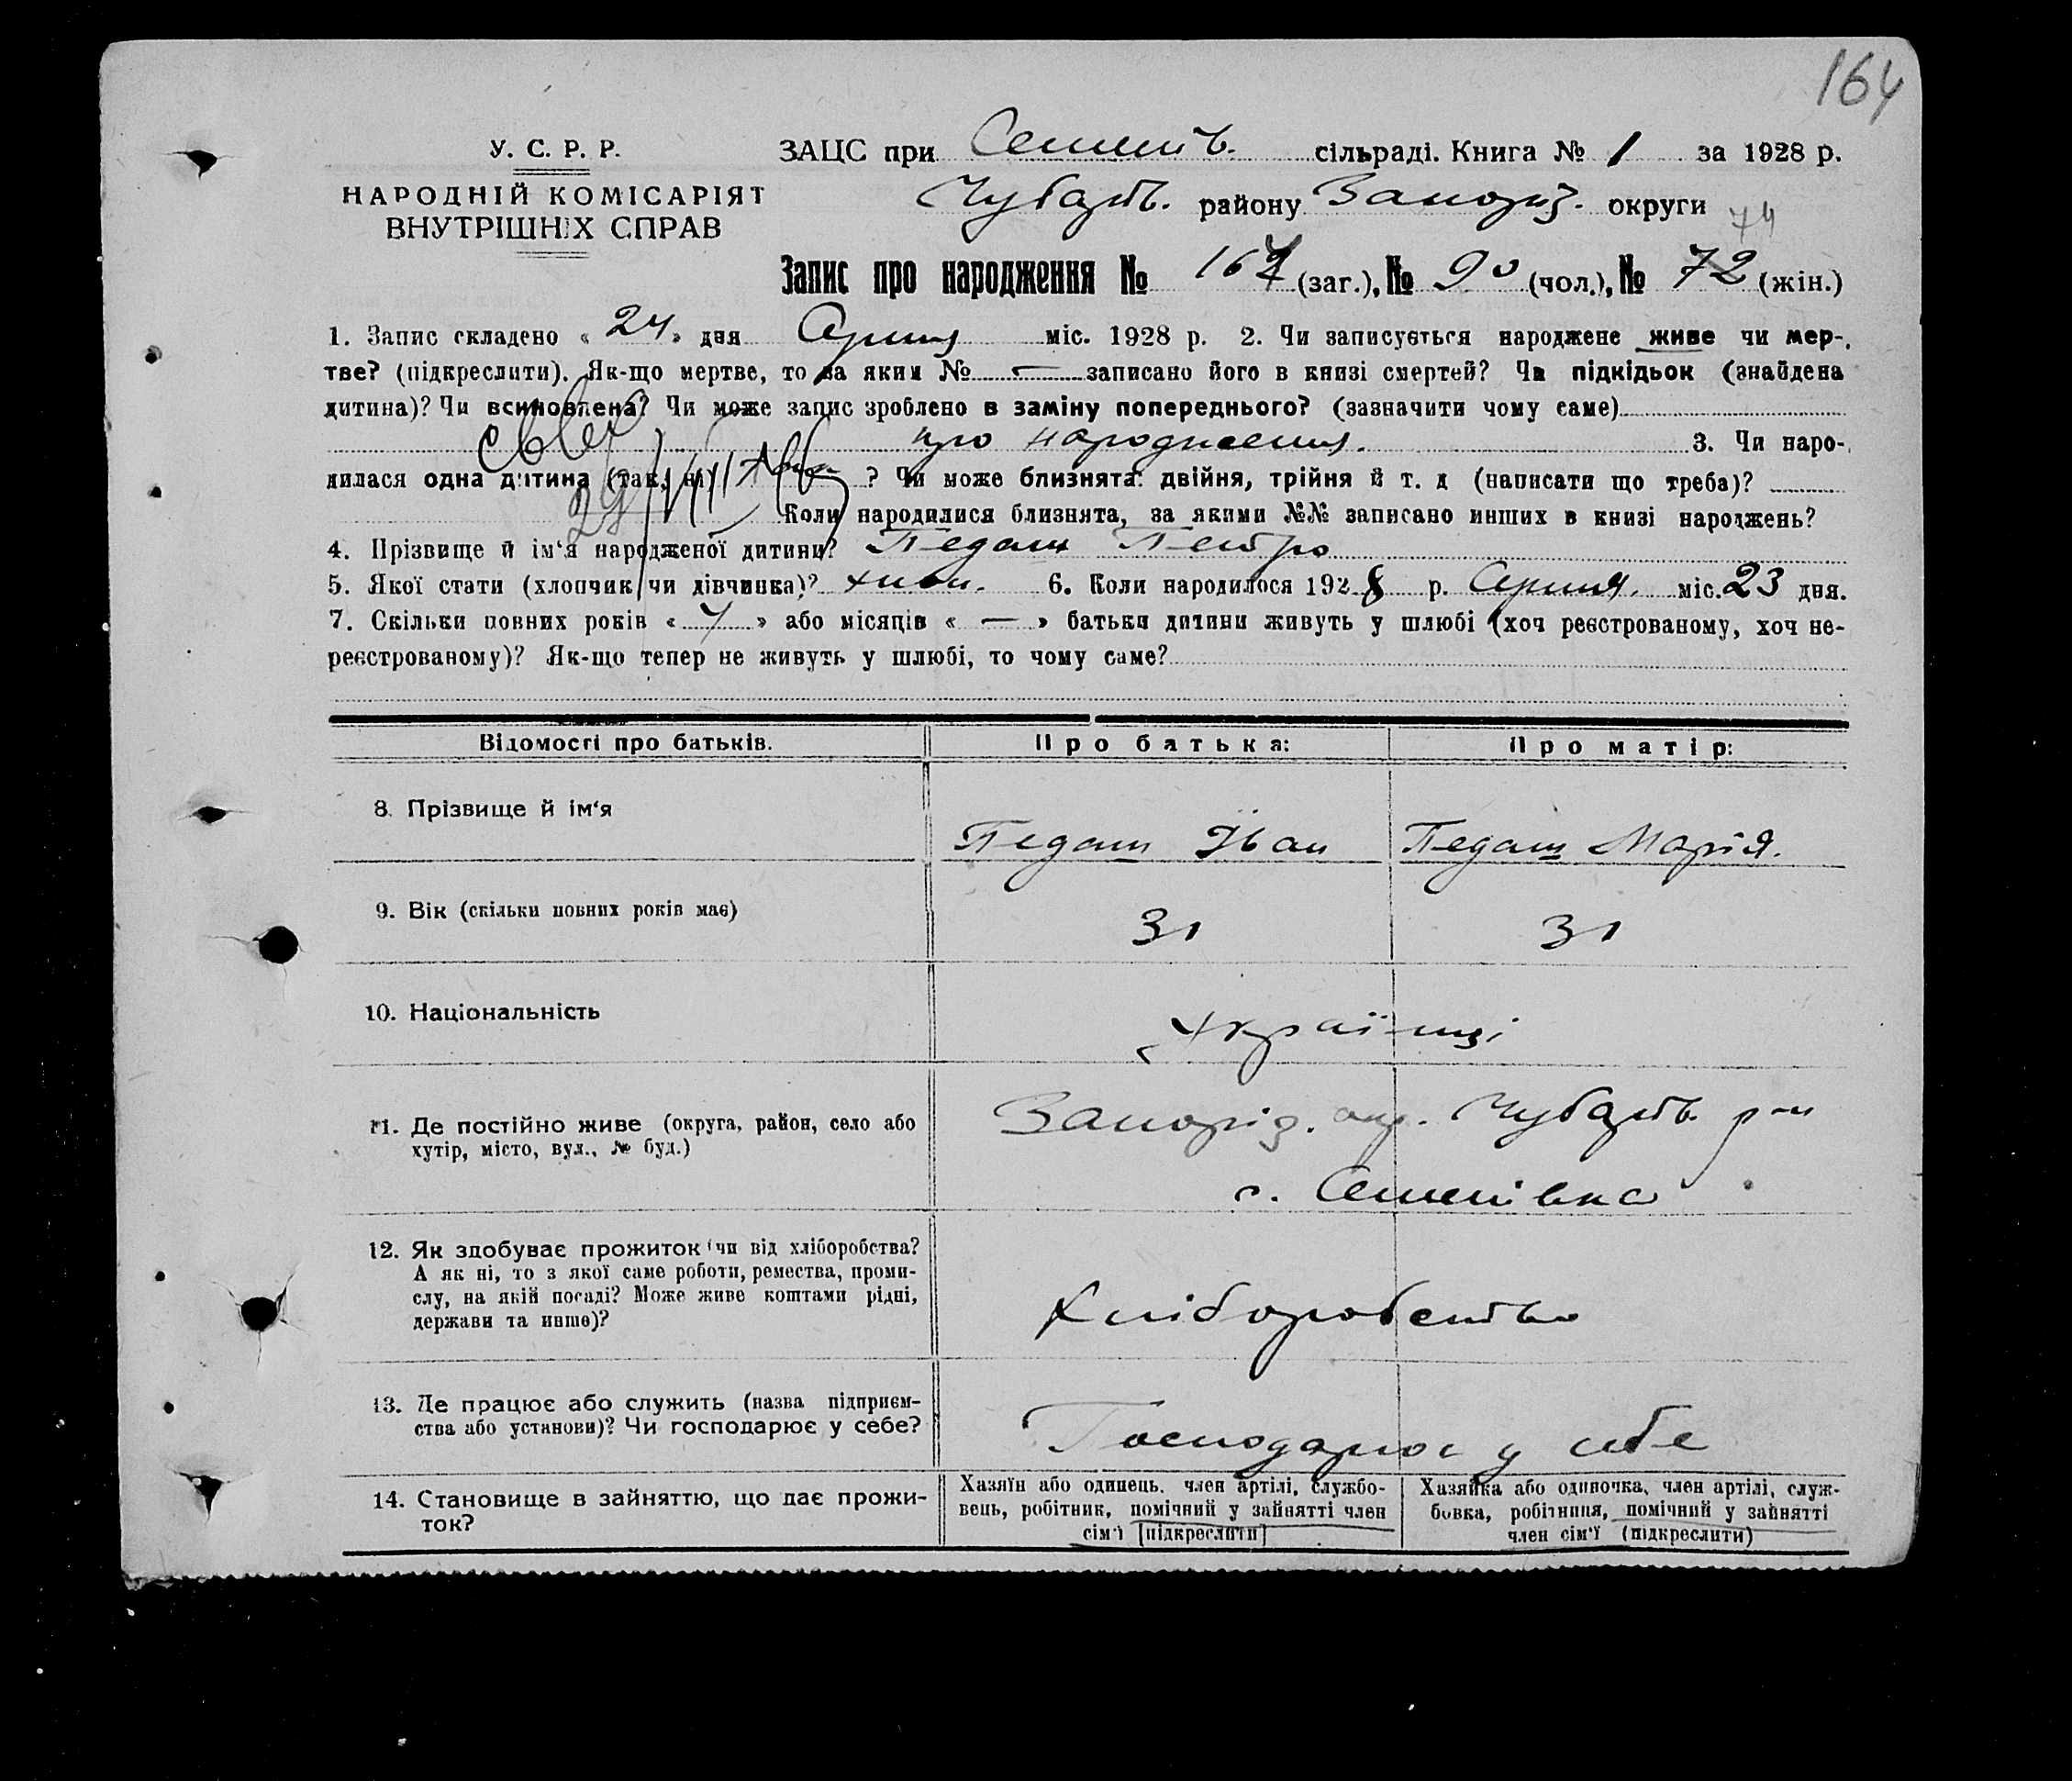 164
У. С. Р. Р.
НАРОДНІЙ КОМІСАРІЯТ
ВНУТРІШНІХ СПРАВ
ЗАЦС при Семенів. сільраді. Книга № 1 за 1928 р.
Чубарів. району Запоріз. округи
74
Запис про народження № 164 (заг.), № 90 (чол.), № 72 (жін.)
1. Запис складено « 24 » дня Серпня міс. 1928 р. 2. Чи записується народжене живе чи мер-
тве? (підкреслити). Як-що мертве, то за яким № — записано його в книзі смертей? Чи підкідьок (знайдена
дитина)? Чи всиновлена? Чи може запис зроблено в заміну попереднього? (зазначити чому саме)
про народження. 3. Чи наро-
дилася одна дитина (так, ні) ? Чи може близнята: двійня, трійня й т. д (написати що треба)?
Коли народилися близнята, за якими №№ записано инших в книзі народжень?
4. Прізвище й ім‘я народженої дитини? Педаш Петро
5. Якої стати (хлопчик чи дівчинка)? хлоп. 6. Коли народилося 1928 р. Серпня міс. 23 дня.
7. Скільки повних років « 7 » або місяців « — » батьки дитини живуть у шлюбі (хоч реєстрованому, хоч не-
реєстрованому)? Як-що тепер не живуть у шлюбі, то чому саме?
Відомості про батьків. Про батька: Про матір:
8. Прізвище й ім‘я Педаш Іван Педаш Марія.
9. Вік (скільки повних років має) 31 31
10. Національність Українці
11. Де постійно живе (округа, район, село або
хутір, місто, вул., № буд.)
Запоріз. окр. Чубарів. р-н
с. Семенівка
12. Як здобуває прожиток (чи від хліборобства?
А як ні, то з якої саме роботи, ремества, проми-
слу, на якій посаді? Може живе коштами рідні,
держави та инше)?
Хліборобство
13. Де працює або служить (назва підприєм-
ства або установи)? Чи господарює у себе?
Господарює у себе
14. Становище в зайняттю, що дає прожи-
ток?
Хазяїн або одинець, член артілі, службо-
вець, робітник, помічний у зайнятті член
сім‘ї [підкреслити]
Хазяйка або одиночка, член артілі, служ-
бовка, робітниця, помічний у зайнятті
член сім‘ї (підкреслити)